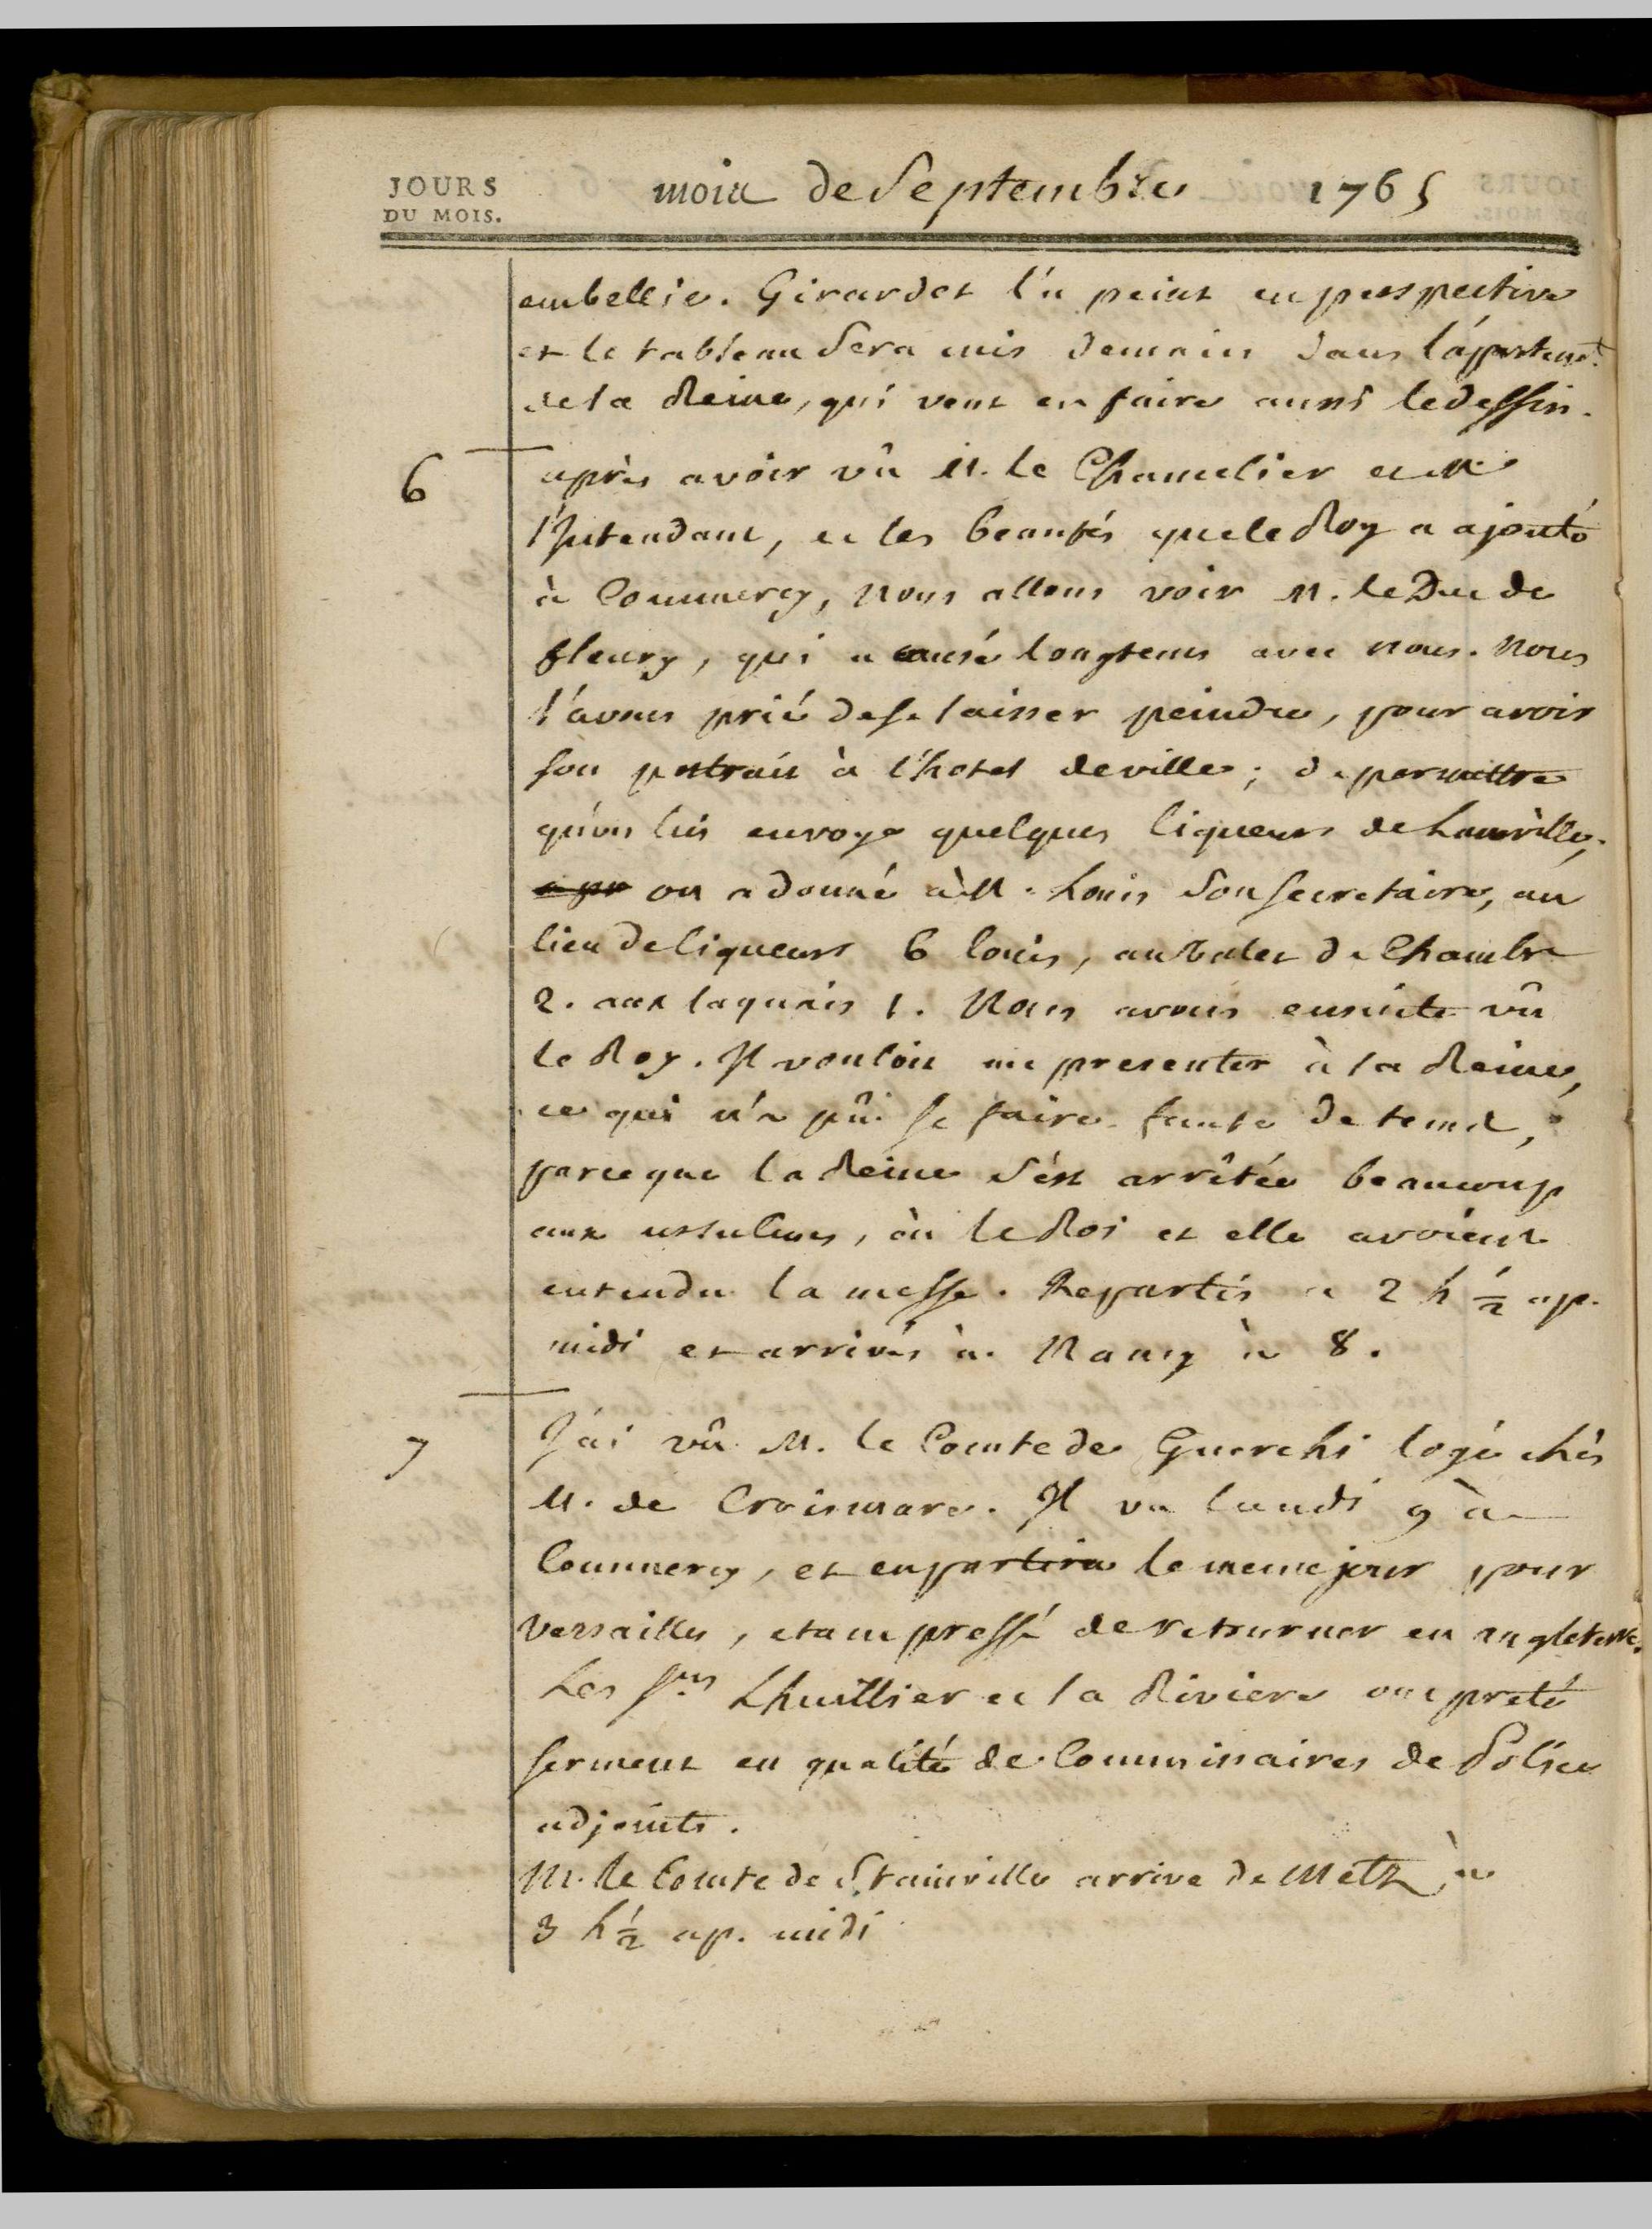 JOURS
DU MOIS.
mois de Septembre 1765
embellie. Girardet l'a peint en perspective
et le tableau sera mis demain dans l'appartemt.
de la Reine, qui veut en faire aussi le dessin.
6 après avoir vû M. le Chancelier et M.
l'Intendant, et les beautés que le Roy a ajouté
à Commercy, nous allons voir M. le Duc de
fleury, qui a causé longtems avec nous. Nous
l'avons prié de se laisser peindre, pour avoir
son portrait à l'hotel de ville; de permettre
qu'on lui envoye quelques liqueurs de Lunéville;
on a donné à M. Louis son secretaire, au
lieu de liqueurs 6 louis, au valet de Chambre
2. aux laquais 1. Nous avons ensuite vû
le Roy. Il vouloit me presenter à la Reine,
ce qui n'a pû se faire faute de tems,
parceque la Reine s'est arrêtée beaucoup
aux ursulines, où le Roi et elle avoient
entendu la messe. Repartis à 2 h ½ ap.
midi et arrivés à Nancy à 8.
7 J'ai vû M. le Comte de Guerchi logé chés
M. de Croismare. Il va lundi 9 à
Commercy, et en partira le meme jour pour
Versailles, etant pressé de retourner en angleterre.
Les Srs Lhuillier et la Riviere ont preté
serment en qualité de Commissaires de Police
adjoints.
M. le Comte de Stainville arrive de Metz à
3 h ½ ap. midi